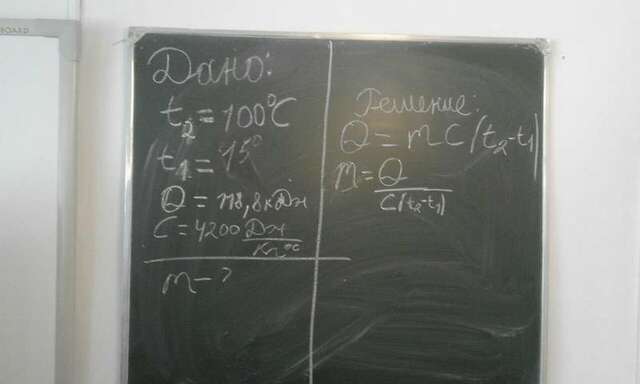 BOARD
Дано:
t₂ = 100°C
t₁ = 15°
Q = 718,8 кДж
C = 4200 Дж/Кг°С
m – ?
Решение:
Q = mc(t₂-t₁)
m = Q/C(t₂-t₁)